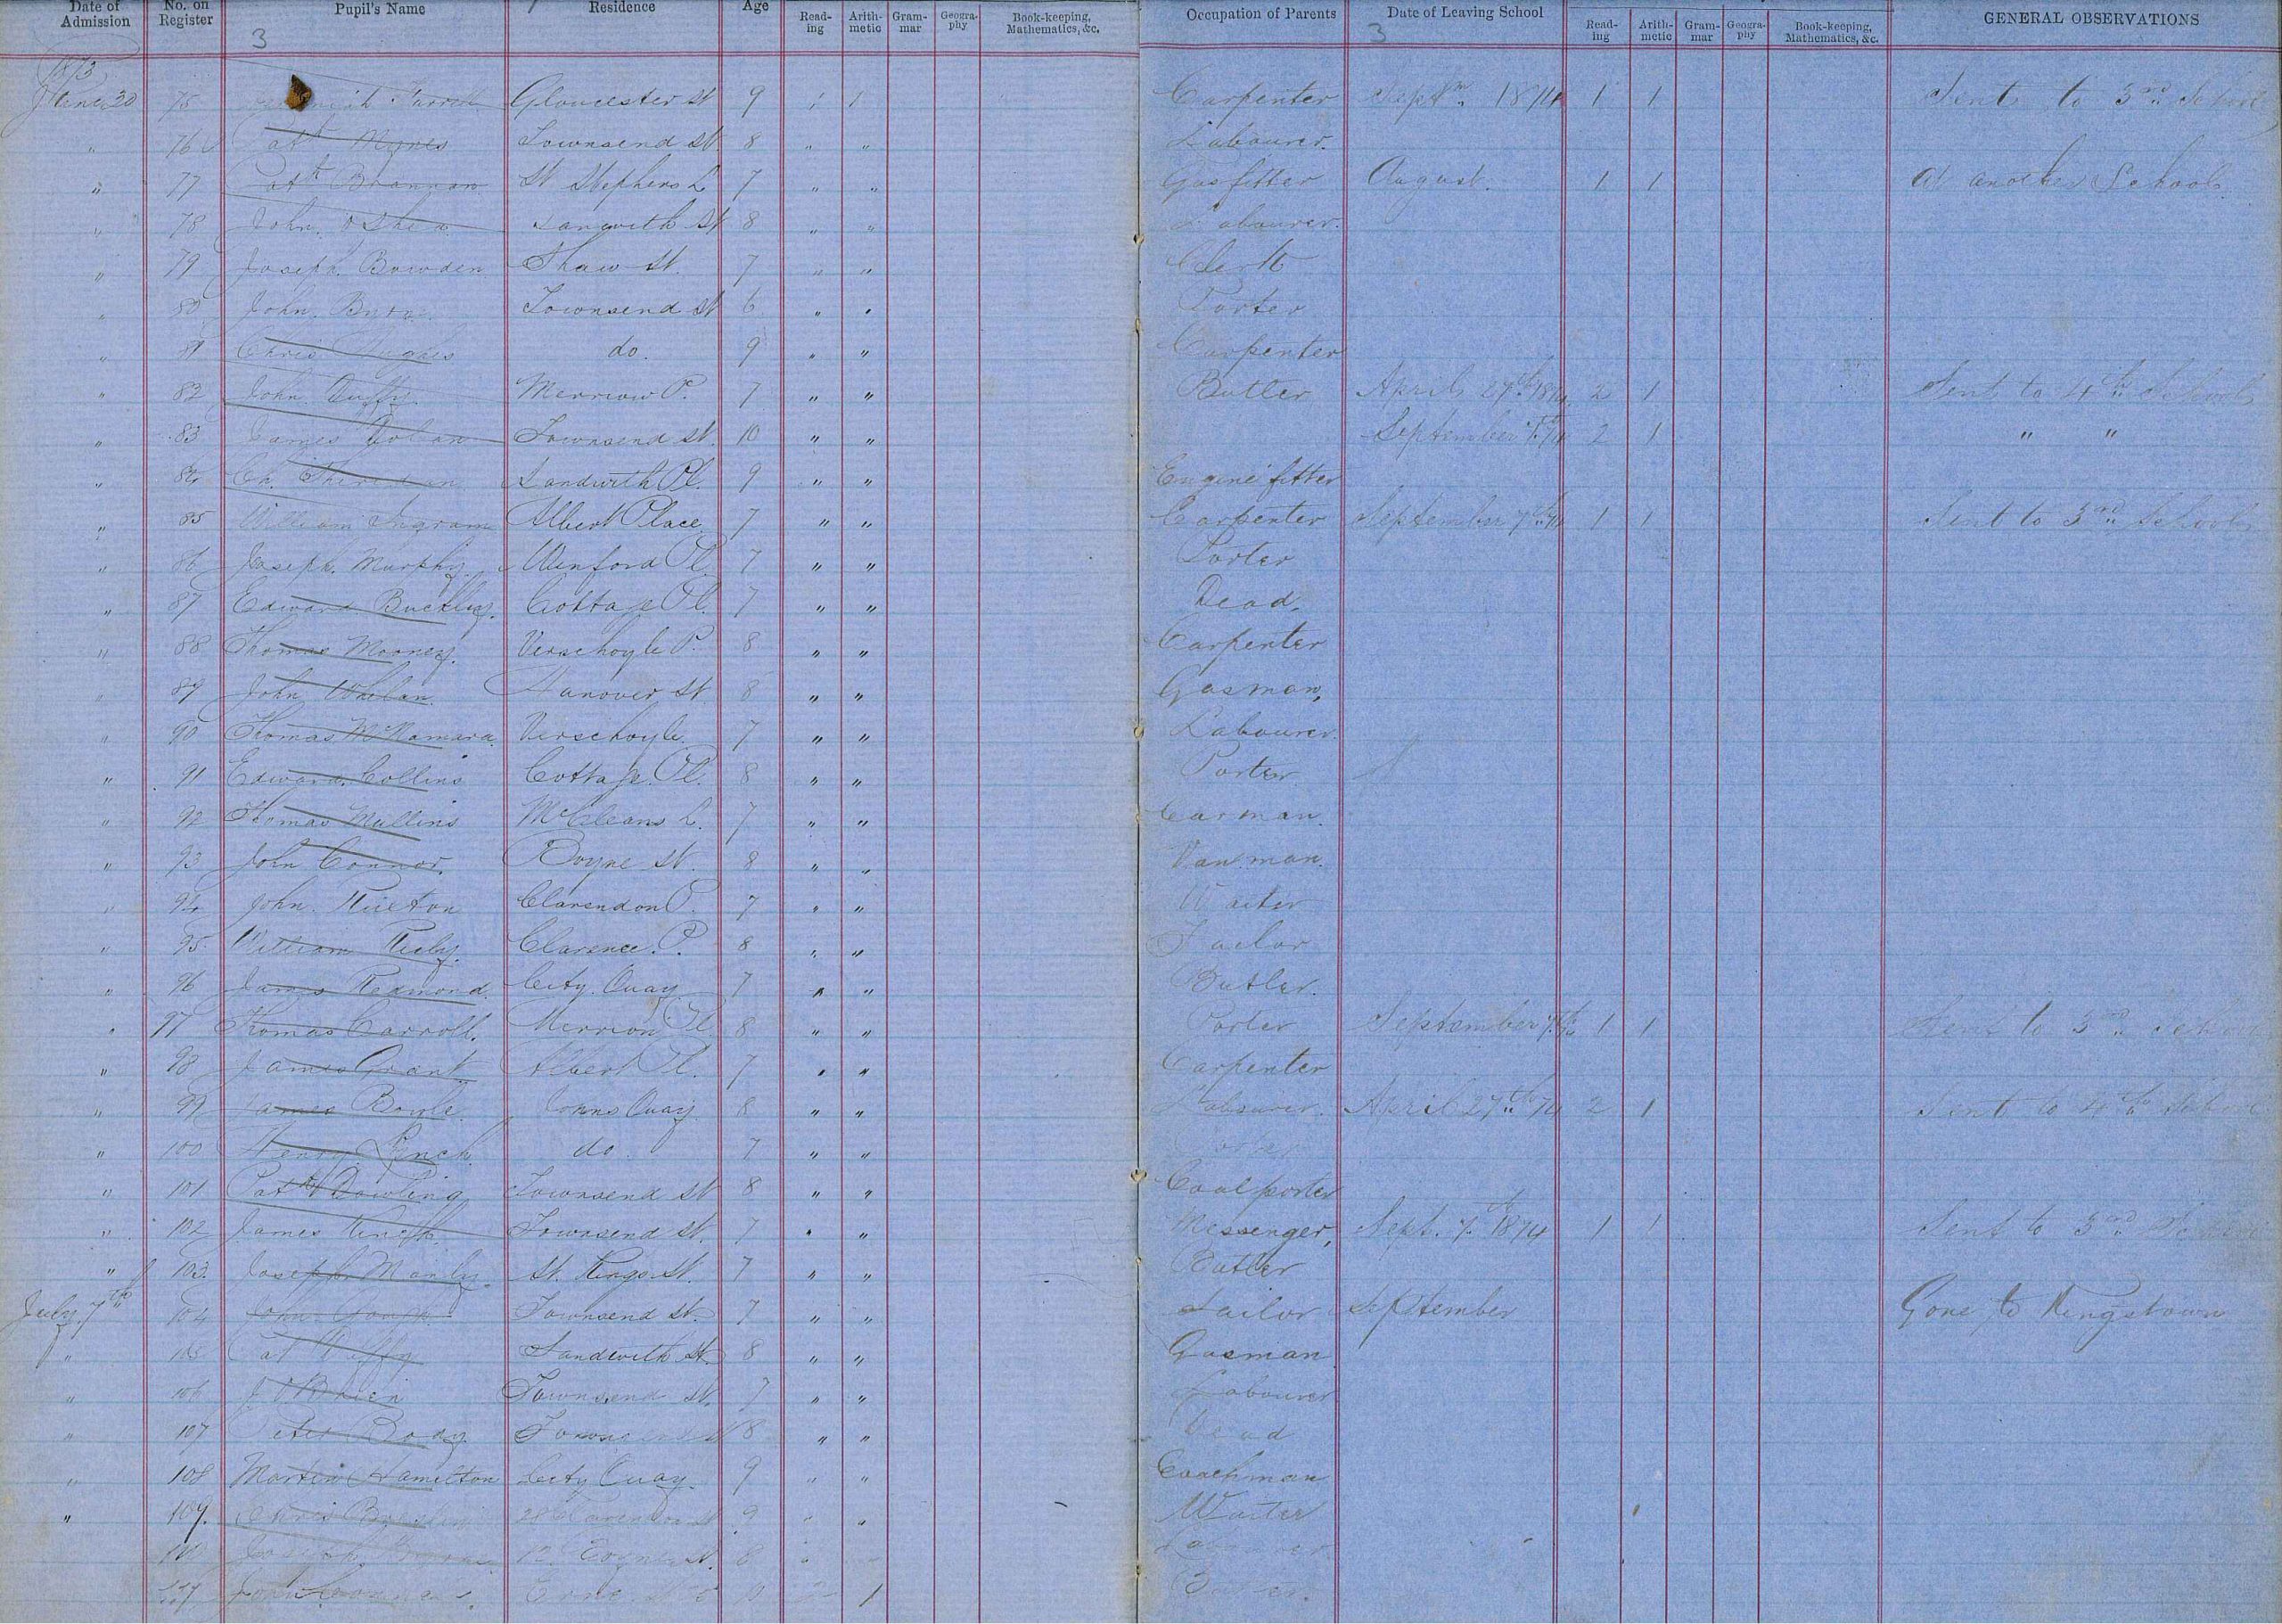 Date of Admission No. on Register Pupil's Name Residence Age Read-ing Arith-metic Gram-mar Geogra-phy Book-keeping, Mathematics, &c. Occupation of Parents Date of Leaving School Read-ing Arith-metic Gram-mar Geogra-phy Book-keeping, Mathematics, &c. GENERAL OBSERVATIONS
3 3
1873
June 20 75 Farrell Gloucester St 9 1 1 Carpenter Septm. 1874 1 1 Sent to 3rd School
" 76 Patk Townsend St 8 " " Labourer.
" 77 Patk Brannan St Stephens L 7 " " Gasfitter August. 1 1 At another School
" 78 John. OShea Sandwith St 8 " " Labourer.
" 79 Joseph. Bowden Shaw St. 7 " " Clerk
" 80 John. Townsend St 6 " " Porter
" 81 Chris Hughes do. 9 " " Carpenter
" 82 John Duffy. Merrion P. 7 " " Butler April 27th 1874 2 1 Sent to 4th School
" 83 James Townsend St. 10 " " September 7th 74 2 1 " "
" 84 Ch. Sheridan Sandwith Pl. 9 " " Engine fitter
" 85 William Ingram Albert Place 7 " " Carpenter September 7th 74 1 1 Sent to 3rd School
" 86 Joseph. Murphy. Pl. 7 " " Porter
" 87 Edward Buckley. Cottage Pl. 7 " " Dead.
" 88 Thomas Mooney. Verschoyle P. 8 " " Carpenter
" 89 John Whelan. Hanover St 8 " " Gasman,
" 90 Thomas McNamara. Verschoyle 7 " " Labourer
" 91 Edward. Collins Cottage. Pl. 8 " " Porter
" 92 Thomas Mullins McCleans L. 7 " " Carman.
" 93 John Connor. Boyne St. 8 " " Vanman.
" 94 John. Clarendon P. 7 " " Waiter
" 95 William Clarence. P. 8 " " Tailor
" 96 James Redmond. City. Quay 7 " " Butler.
" 97 Thomas Carroll. Merrion Pl 8 " " Porter September 7th 1 1 Sent to 3rd School
" 98 James Grant Albert Pl. 7 " " Carpenter
" 99 James Boyle. Johns Quay. 8 " " Labourer. April 27th 74 2 1 Sent to 4th School
" 100 Henry Lynch. do. 7 " " Porter
" 101 Patk Dowling Townsend St 8 " " Coalporter
" 102 James Townsend St. 7 " " Messenger, Sept. 7th 1874 1 1 Sent to 3rd School
" 103. Joseph Manly. St. Kings St. 7 " " Butler
July 7th 104 John Townsend St. 7 " " Tailor September Gone to Kingstown
" 105 Pat Duffy Sandwith St. 8 " " Gasman
" 106 J OBrien Townsend St. 7 " " Labourer
" 107 Peter Body. Townsend St 8 " " Dead
" 108 Martin Hamilton City Quay. 9 " " Coachman
" 109. Chris 9 " " Waiter
110 Joseph 12 Boyne St. 8 " " Labourer
John Erne St 1